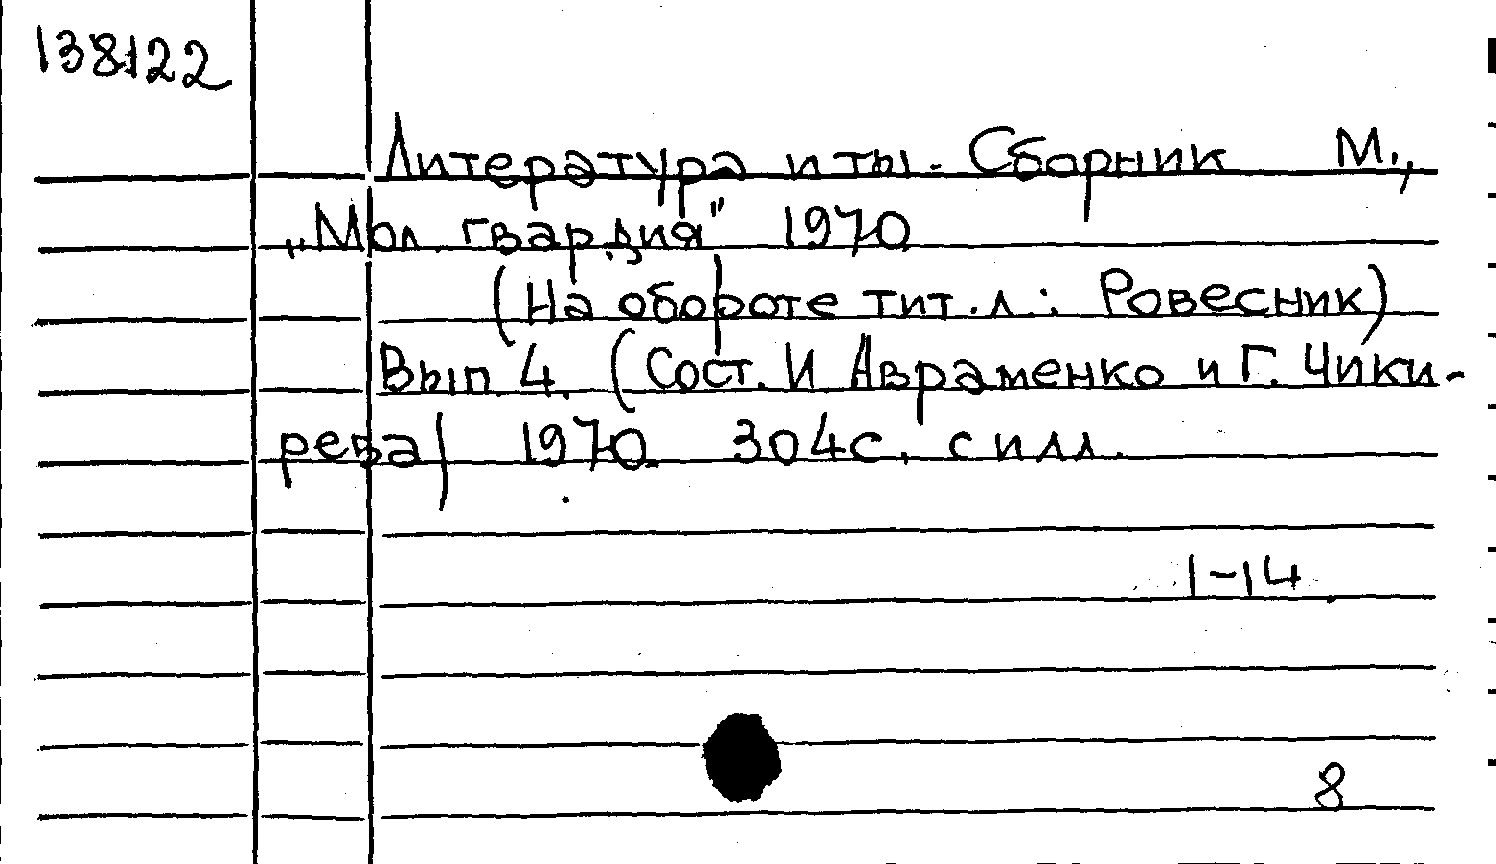 138122
Литература и ты. Сборник М.,
„Мол. гвардия" 1970
(На обороте тит. л.: Ровесник)
Вып 4. (Сост. И Авраменко и Г. Чики-
рева) 1970. 304с. с илл.
1-14
8